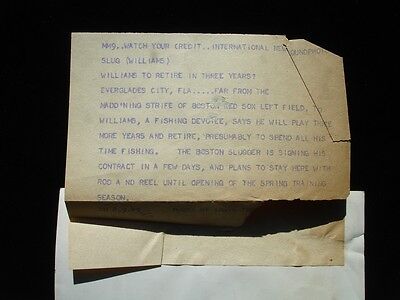 MM9..WATCH YOUR CREDIT..INTERNATIONAL NEW SOUNDPHOTO
SLUG (WILLIAMS)
WILLIAMS TO RETIRE IN THREE YEARS?
EVERGLADES CITY, FLA.....FAR FROM THE
MADD'NING STRIFE OF BOSTON RED SOX LEFT FIELD, TED
WILLIAMS, A FISHING DEVOTEE, SAYS HE WILL PLAY THREE
MORE YEARS AND RETIRE, PRESUMABLY TO SPEND ALL HIS
TIME FISHING. THE BOSTON SLUGGER IS SIGNING HIS
CONTRACT IN A FEW DAYS, AND PLANS TO STAY HERE WITH
ROD A ND REEL UNTIL OPENING OF THE SPRING TRAINING
SEASON.